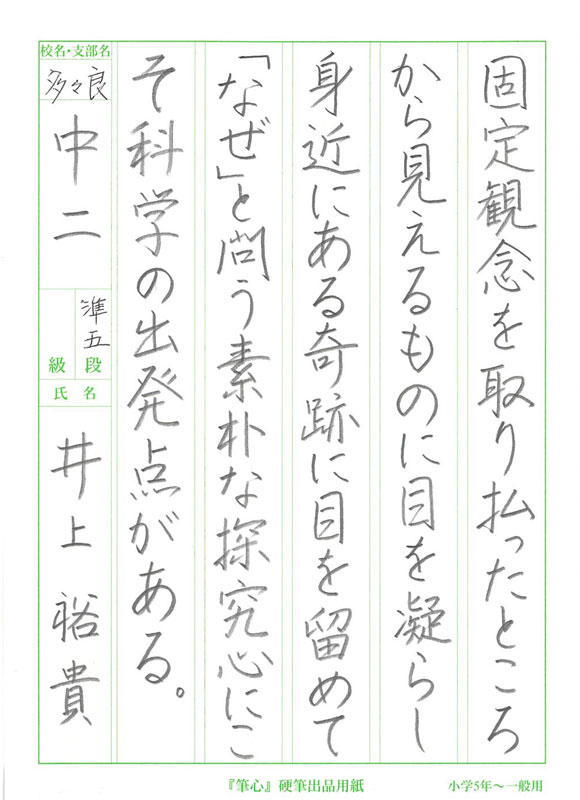 固定観念を取り払ったところ
から見えるものに目を凝らし
身近にある奇跡に目を留めて
「なぜ」と問う素朴な探究心にこ
そ科学の出発点がある。
校名・支部名
多々良
中二
準五
段
級
氏名
井上裕貴
『筆心』硬筆出品用紙
小学5年〜一般用